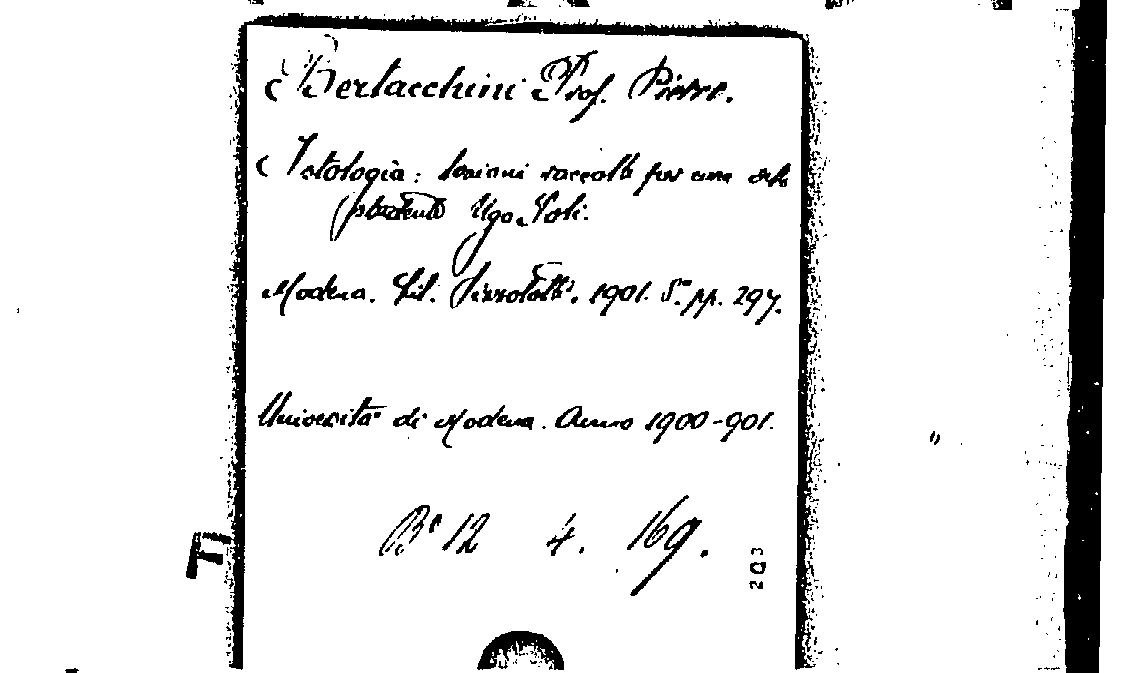 Bertacchini Prof. Pietro.
Istologia: lezioni raccolte per cura dello
studente Ugo Poli.
Modena. Lit. Pizzolotti. 1901. 8.° pp. 297.
Università di Modena. Anno 1900-901.
B.e 12 4. 169.
203
F